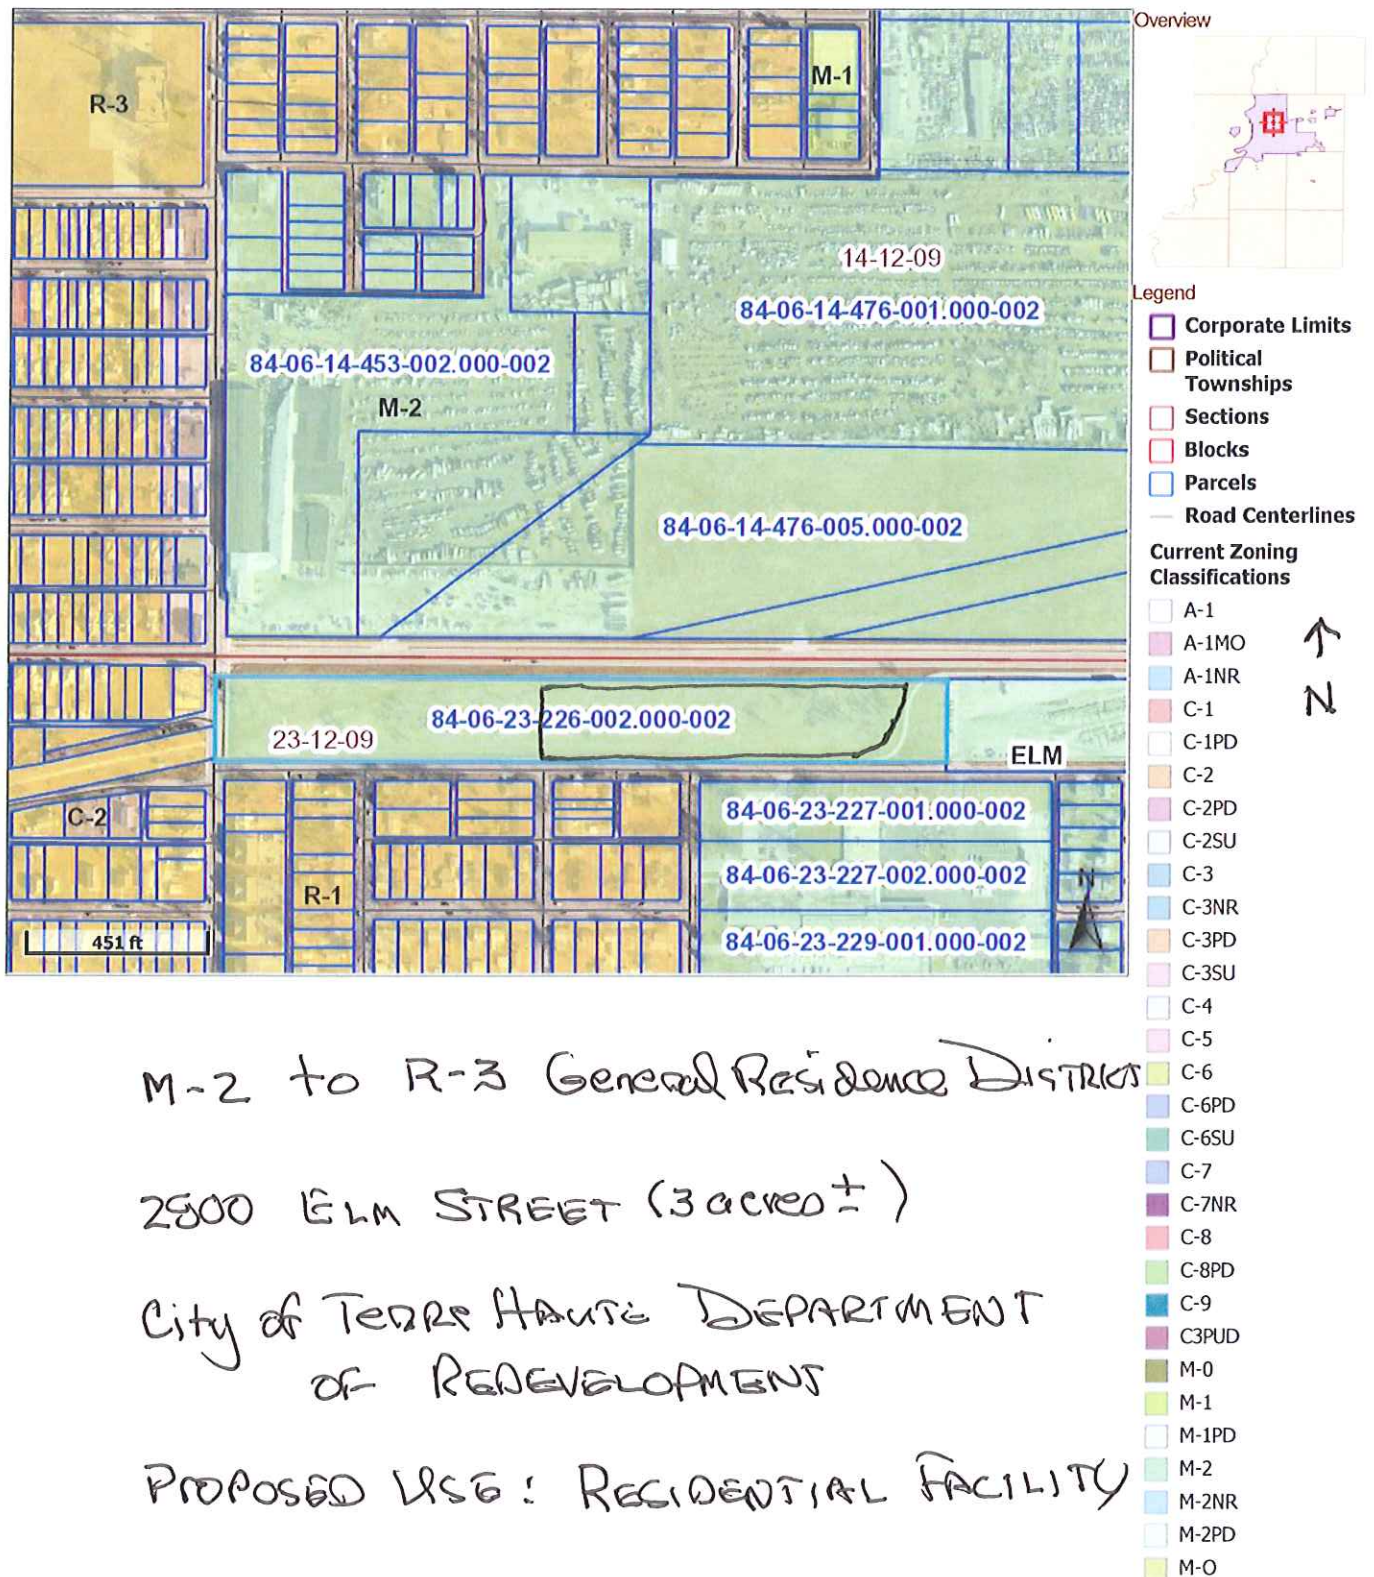 Overview
R-3
M-1
14-12-09
84-06-14-476-001.000-002
84-06-14-453-002.000-002
M-2
84-06-14-476-005.000-002
84-06-23-226-002.000-002
23-12-09
ELM
84-06-23-227-001.000-002
C-2
84-06-23-227-002.000-002
R-1
N
84-06-23-229-001.000-002
451 ft
Legend
Corporate Limits
Political
Townships
Sections
Blocks
Parcels
Road Centerlines
Current Zoning
Classifications
A-1
A-1MO
A-1NR
C-1
C-1PD
C-2
C-2PD
C-2SU
C-3
C-3NR
C-3PD
C-3SU
C-4
C-5
C-6
C-6PD
C-6SU
C-7
C-7NR
C-8
C-8PD
C-9
C3PUD
M-0
M-1
M-1PD
M-2
M-2NR
M-2PD
M-O
N
M-2 to R-3 General Residence District
2800 ELM STREET (3 acres ±)
City of TERRE HAUTE DEPARTMENT
OF REDEVELOPMENT
PROPOSED USE: RESIDENTIAL FACILITY